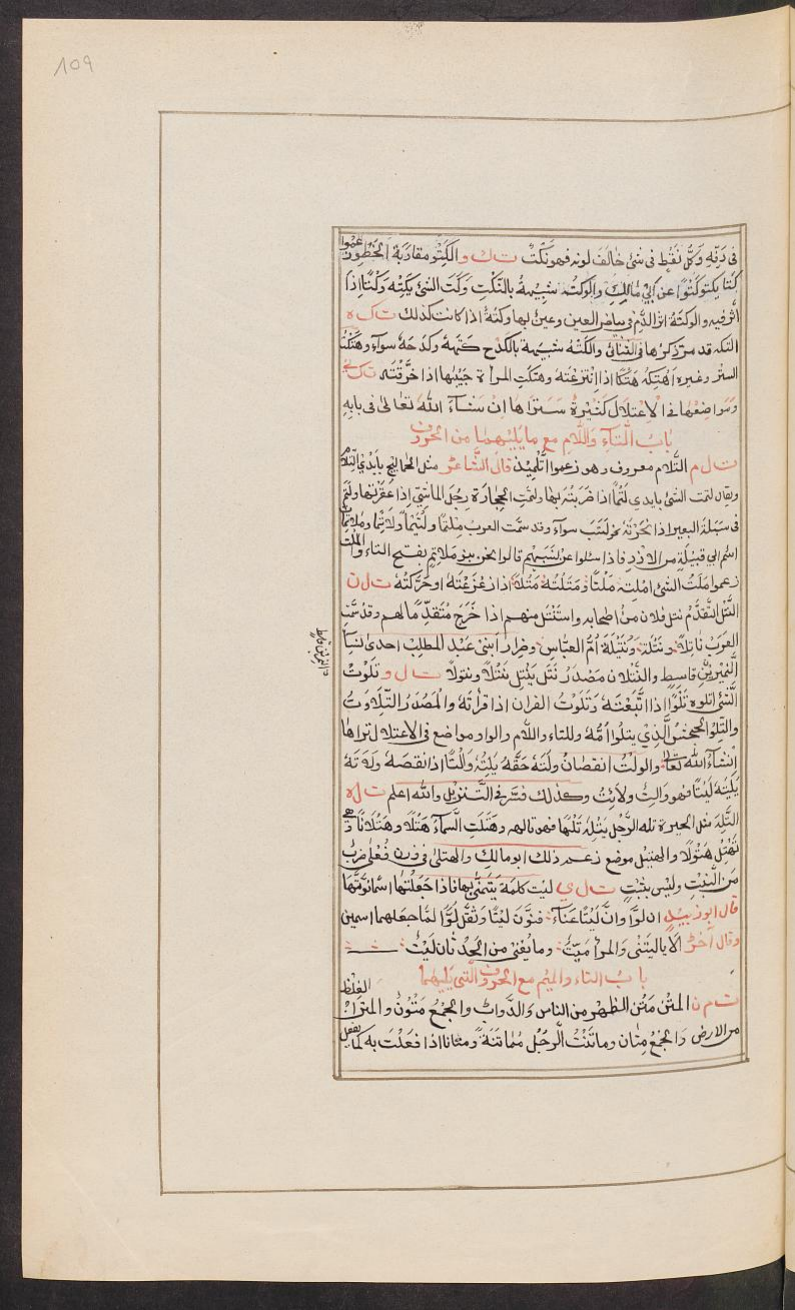 109
فى دَنِّهِ وَكلّ نقْطٍ فى شئ خالَف لونه فهو نَكْتٌ ت ك و الكَتْو مقارَبَة الخَطْو
كتا يكتو كَتْوًا عن ابى مالكٍ والوكتة شبيهة بالنكتِ وَكَتَ الشئ يَكِتُه وَكْتًا اذا
اثر فيه والوكتة اثر الدَّم فى بياض العين وعين بها وكتَة اذا كانت كذلك ت ك ه
التكه قد مرّ ذكرها فى الثنائى والكتْهُ شبيهة بالكدْح كَتَهَهُ وكدَحَهُ سواء وهَتَكْتُ
الستْر وغيره اَهْتِكهُ هَتْكًا اذا انتزعْته وهتكتِ المرأة جَيْبها اذا خرَّقتْه ت ك ي
ومواضعها فى الاعْتلال كثيرةٌ ستراها ان شاء الله تعالى فى بابه
باب التاء واللام مع ما يليهما من الحروف
ت ل م التّلام معروف وهو زعموا تلميذ قال الشاعر مثل الحماليج بأيدى التلام
ويقال لتمت الشئ بايدى لتمًا اذا ضربته بها ولتمتِ الحجارة رِجْل الماشى اذا عقرتها ولَتَم
فى سَبَلة البعير اذا نحرَتهُ نحو لَتَبَ سواء وقد سمّت العرب مِلتمًا ولُتَيْمًا ولاتما وملاتم
اسم ابى قبيلة من الازد فاذا سئلوا عن نسبهم قالوا نحن بنو ملاتم بفتح التاء والملت
زعموا مَلَتُّ الشئ امْلِته مَلْتًا ومَتَلْتُه مَتْلًا اذا زعْزعْته او حَرَّكته ت ل ن
النَّتْل التَّقدُّم نتل فلان من اصحابه واستنتل منهم اذا خرج متقدِّمًا لهم وقد سمّت
العرب ناتِلًا ونتْلة ونُتَيْلَة اُمُّ العبّاس وضِرار اَبنَىْ عَبْد المطلب احدى نساء
النَّمِر بْنِ قاسِط والنّتلان مصْدَر نَتَل يَنْتِل نَتْلًا ونتولا ت ل و تلَوْتُ
النمر بن قاسط
الشئ اتلوه تُلُوًّا اذا اتَّبعْتَهُ وتلَوْتُ القران اذا قراْته والمصْدَر التّلاوة
والتّلو الجحش الّذى يتلوا اُمّه وللتاء واللام والواو مواضع فى الاعتلال تراها
انشاء الله تعالى والولْتُ النقصان ولَتَهُ حَقّهُ يَلِتُهُ وَلْتًا اذا نقصَهُ ولاتَهُ
يَلِيتُه لَيْتًا فهو والِتٌ ولائتٌ وكذلك فسّر فى التَّنزيل والله اعلم ت ل ه
التَّلَهُ مثل الحيرة تله الرَّجل يتلَه تَلَهًا فهو تالِه وهتَلَتِ السّماءُ هَتْلًا وهَتَلانًا
تَهْتِل هُتُولًا والهتيل موضع زعم ذلك ابو مالك والهتلى فى وزن فَعْلى ضرب
من النّبت وليس بثبْت ت ل ي ليت كلمة يتمنّى بها فاذا جعَلتها اسمًا نوّنتها
قال ابو زبيدٍ ان لَوًّا وانَّ لَيْتًا عَناء فنوَّن ليتًا وثقَّل لوًّا لمّا جعلهما اسمين
وقال آخر اَلا يا ليتنى والمرْأ مَيْتٌ وما يُغنى من الحِدْثان لَيْتُ
باب التاء والميم مع الحروف الّتى تليهما
ت م ن المتْن مَتْن الظهر من الناس والدَّواب والجمْعُ مُتُونٌ والمتن الغِلَظ
من الارض والجمعُ مِتان وماتَنْتُ الرجُل مُماتنَةً ومتانا اذا فعَلْت به كما يفعل